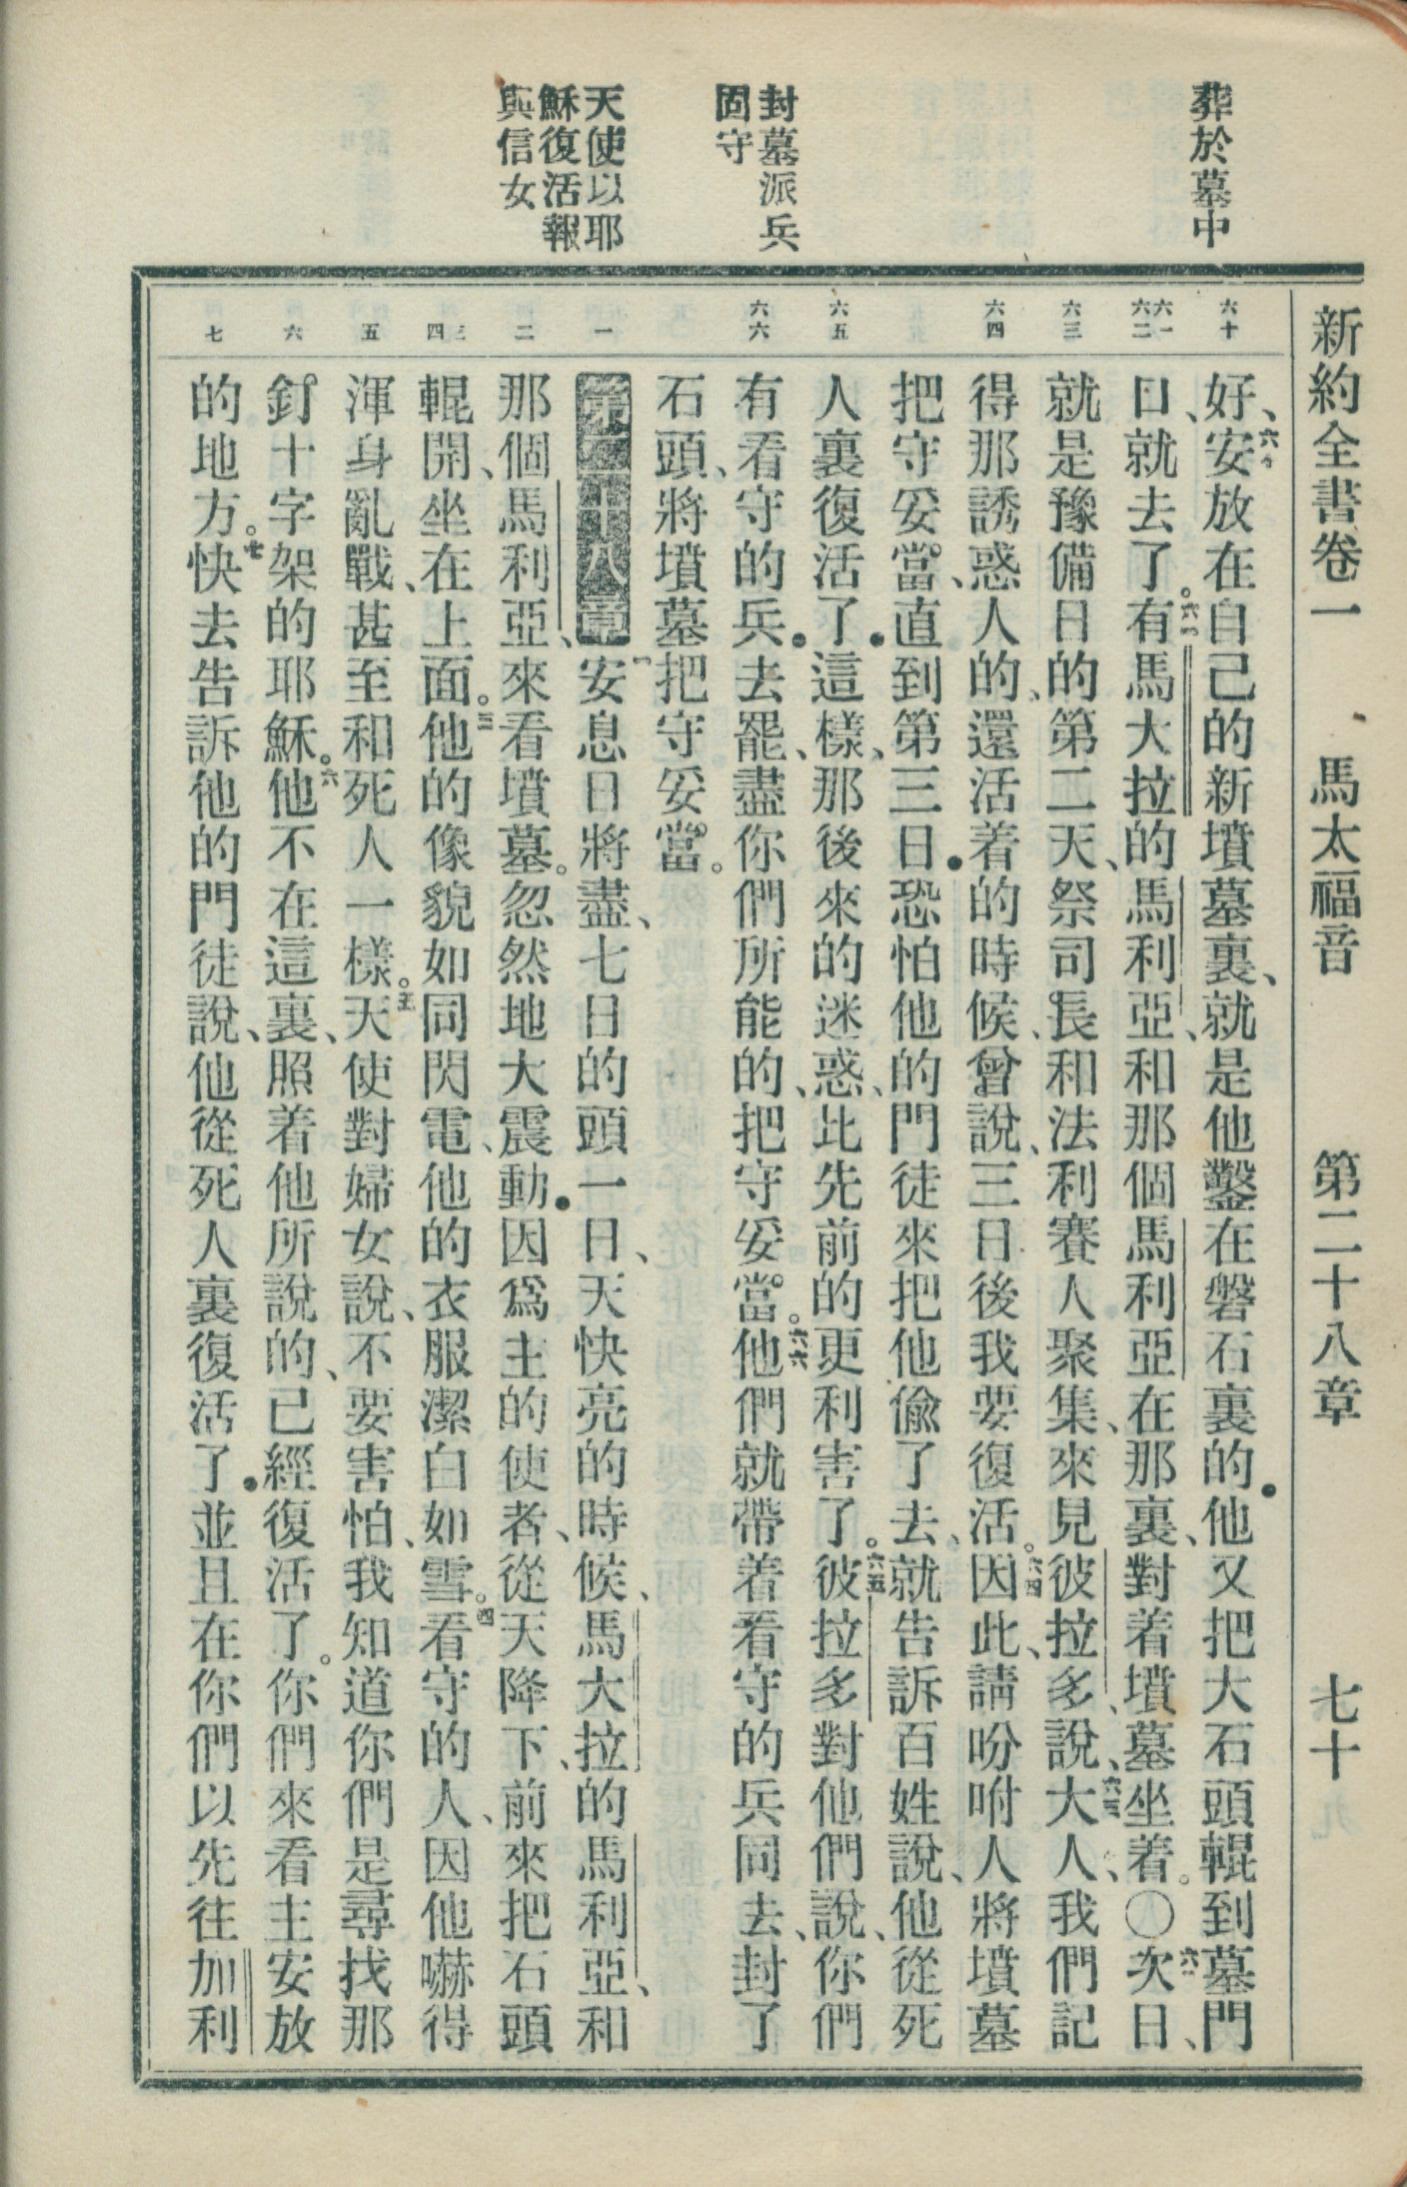 葬於墓中
封墓派兵
固守
天使以耶
穌復活報
與信女
新約全書卷一 馬太福音 第二十八章 七十
六十
六一
六二
六三
六四
六五
六六
一
二
三
四
五
六
七
好、安放在自己的新墳墓裏、就是他鑿在磐石裏的．他又把大石頭輥到墓門
口、就去了。六一有馬大拉的馬利亞、和那個馬利亞在那裏、對着墳墓坐着。〇六二次日、
就是豫備日的第二天、祭司長和法利賽人聚集、來見彼拉多、說、六三大人、我們記
得那誘惑人的、還活着的時候、曾說、三日後我要復活。六四因此、請吩咐人將墳墓
把守妥當、直到第三日．恐怕他的門徒來把他偷了去、就告訴百姓說、他從死
人裏復活了．這樣、那後來的迷惑、比先前的更利害了。六五彼拉多對他們說、你們
有看守的兵．去罷、盡你們所能的、把守妥當。六六他們就帶着看守的兵同去、封了
石頭、將墳墓把守妥當。
第二十八章 一安息日將盡、七日的頭一日、天快亮的時候、馬大拉的馬利亞、和
那個馬利亞、來看墳墓。忽然地大震動．因爲主的使者、從天降下、前來把石頭
輥開、坐在上面。三他的像貌如同閃電、他的衣服潔白如雪。四看守的人、因他嚇得
渾身亂戰、甚至和死人一樣。五天使對婦女說、不要害怕、我知道你們是尋找那
釘十字架的耶穌。六他不在這裏、照着他所說的、已經復活了。你們來看主安放
的地方。七快去告訴他的門徒說、他從死人裏復活了．並且在你們以先往加利